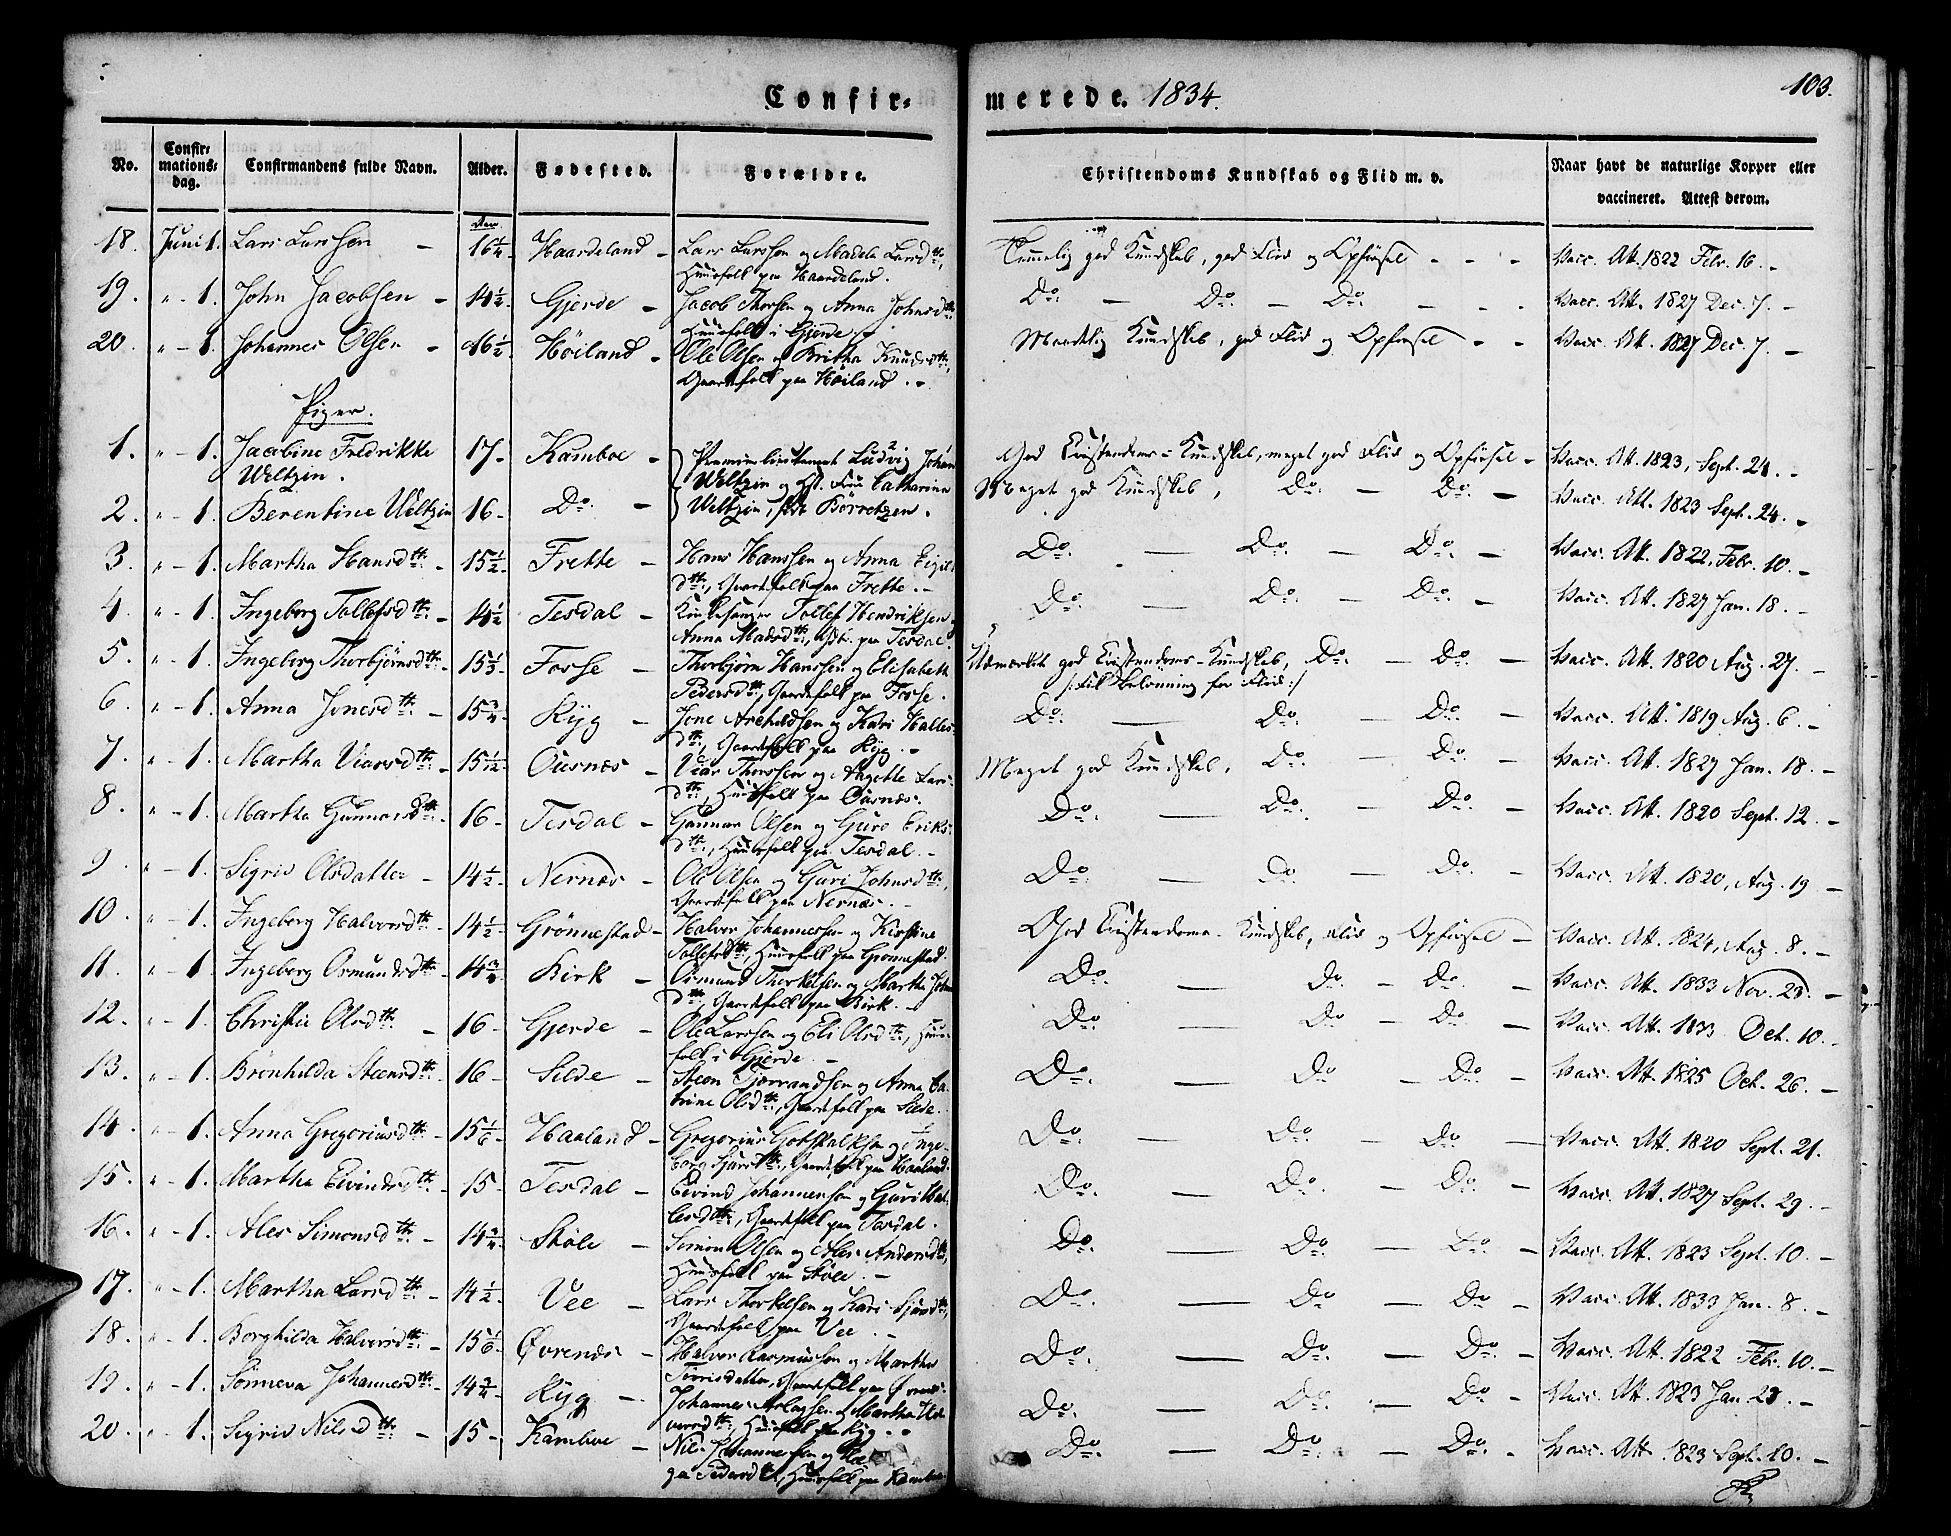 103.
Confir- merede. 1834.
No. Confir-mations-dag. Confirmandens fulde Navn. Alder. Fødested. Forældre. Christendoms Kundskab og Flid m. v. Naar havt de naturlige Kopper eller vaccineret. Attest derom.
18. Juni 1. Lars Larssen - 16¼ Haardeland - Lars Larssen og Madela Larsdtr., Huusfolk paa Haardeland. Temmelig god Kundskab, god Flid og Opførsel - - - Vacc. Att. 1822 Febr. 16. -
19. " - 1. John Jacobsen - 14½ Gjerde - Jacob Thorsen og Anna Johnsdtr., Huusfolk i Gjerde. Do. - Do. - Do. - - - Vacc. Att. 1827 Dec. 7. -
20. " - 1. Johannes Olsen - 16½ Høiland - Ole Olsen og Britha Knudsdtr., Gaardfolk paa Høiland. - Maadelig Kundskab, god Flid og Opførsel - - Vacc. Att. 1827 Dec. 7. -
Piger.
1. " - 1. Jacobine Fredrikke Weltzin. 17 - Kamboe - Premierlieutenant Ludvig Johan
2. " - 1. Berentine Weltzin 16 - Do. - Weltzin og Frue Catharina Weltzin, født Børretzen.
God Christendoms-Kundskab, meget god Flid og Opførsel - Vacc. Att. 1823, Sept. 24. -
Meget god Kundskab, Do. - Do. - Vacc. Att. 1823 Sept. 24. -
3. " - 1. Martha Hansdtr. - 15½ Frette - Hans Hanssen og Anna Eigilsdtr., Gaardfolk paa Frette. - Do. - Do. - Do. - Vacc. Att. 1822 Febr. 10. -
4. " - 1. Ingeborg Tollefsdtr. - 14½ Tesdal - Kirkesanger Tollef Hendriksen Anna Madsdtr., paa Tesdal Do. - Do. - Do. - Vacc. Att. 1827 Jan. 18. -
5. " - 1. Ingeborg Thorbjørnsdtr. 15⅓ Fosse - Thorbjørn Hanssen og Elisabeth Pedersdtr., Gaardfolk paa Fosse. Udmærket god Christendoms-Kundskab, Do. - Do. - /: fik Belønning for Flid :/ Vacc. Att. 1820 Aug. 27. -
6. " - 1. Anna Jonesdtr. - 15¾ Ryg - Jone Anfindsen og Kari Hallesdtr., Gaardfolk paa Ryg. - Do. - Do. - Do. - Vacc. Att. 1819 Aug. 6. -
7. " - 1. Martha Viarsdtr. - 15 1/12 Øuernæs - Viar Thorssen og Angette Larsdtr., Huusfolk paa Øuernæs. Meget god Kundskab, Do. - Do. - Vacc. Att. 1827 Jan. 18. -
8. " - 1. Martha Gunnarsdtr. 16 - Tesdal - Gunnar Olsen og Guro Eriksdtr., Huusfolk paa Tesdal. - Do. - Do. - Do. - Vacc. Att. 1820 Sept. 12. -
9. " - 1. Sigrid Olsdatter - 14½ Nernæs - Ole Olsen og Guri Johnsdtr., Gaardfolk paa Nernæs. - Do. - Do. - Do. - Vacc. Att. 1820, Aug. 19. -
10. " - 1. Ingeborg Halvorsdtr. 14½ Grønnestad - Halvor Johannessen og Kirstine Tollefsdtr., Huusfolk paa Grønnestad. God Christendoms-Kundskab, Flid og Opførsel - Vacc. Att. 1824, Aug. 8. -
11. " - 1. Ingeborg Osmundsdtr. 14¾ Birk - Osmund Thorkelsen og Martha Johnsdtr., Gaardfolk paa Birk. - Do. - Do. - Do. - Vacc. Att. 1833 Nov. 23. -
12. " - 1. Christie Olsdtr. - 16 - Gjerde - Ole Larssen og Eli Olsdtr., Huusfolk i Gjerde. - Do. - Do. - Do. - Vacc. Att. 1833 Oct. 10. -
13. " - 1. Brønhilda Steensdtr. 16 - Silde - Steen Tjørrandsen og Anna Catrine Olsdtr., Gaardfolk paa Silde. Do. - Do. - Do. - Vacc. Att. 1825 Oct. 26. -
14. " - 1. Anna Gregoriusdtr. 15⅙ Haaland - Gregorius Gotskalksen og Ingeborg Sjursdtr., Gaardfolk paa Haaland. Do. - Do. - Do. - Vacc. Att. 1820 Sept. 21.
15. " - 1. Martha Eivindsdtr. 15 - Tesdal - Eivind Johannessen og Guri Hallesdtr., Gaardfolk paa Tesdal. Do. - Do. - Do. - Vacc. Att. 1827 Sept. 29. -
16. " - 1. Ales Simonsdtr. - 14¾ Støle - Simon Olsen og Ales Andersdtr., Huusfolk paa Støle. - Do. - Do. - Do. - Vacc. Att. 1823 Sept. 10. -
17. " - 1. Martha Larsdtr. - 14½ Vee - Lars Thorkelsen og Kari Sjursdtr., Gaardfolk paa Vee. - Do. - Do. - Do. - Vacc. Att. 1833 Jan. 8. -
18. " - 1. Borghilda Halvorsdtr. 15⅙ Øvrenæs - Halvor Rasmussen og Martha Tørrisdatter, Gaardfolk paa Øvrenæs. Do. - Do. - Do. - Vacc. Att. 1822 Febr. 10. -
19. " - 1. Sønneva Johannesdtr. 14¾ Ryg - Johannes Aslagsen og Martha Halvorsdtr., Huusfolk paa Ryg. - Do. - Do. - Do. - Vacc. Att. 1823 Jan. 23. -
20. " - 1. Sigrid Nilsdtr. - 15 - Kamboe - Nils Johannessen og Pedersdtr., Huusfolk paa Kamboe Do. - Do. - Do. - Vacc. Att. 1823 Sept. 10. -